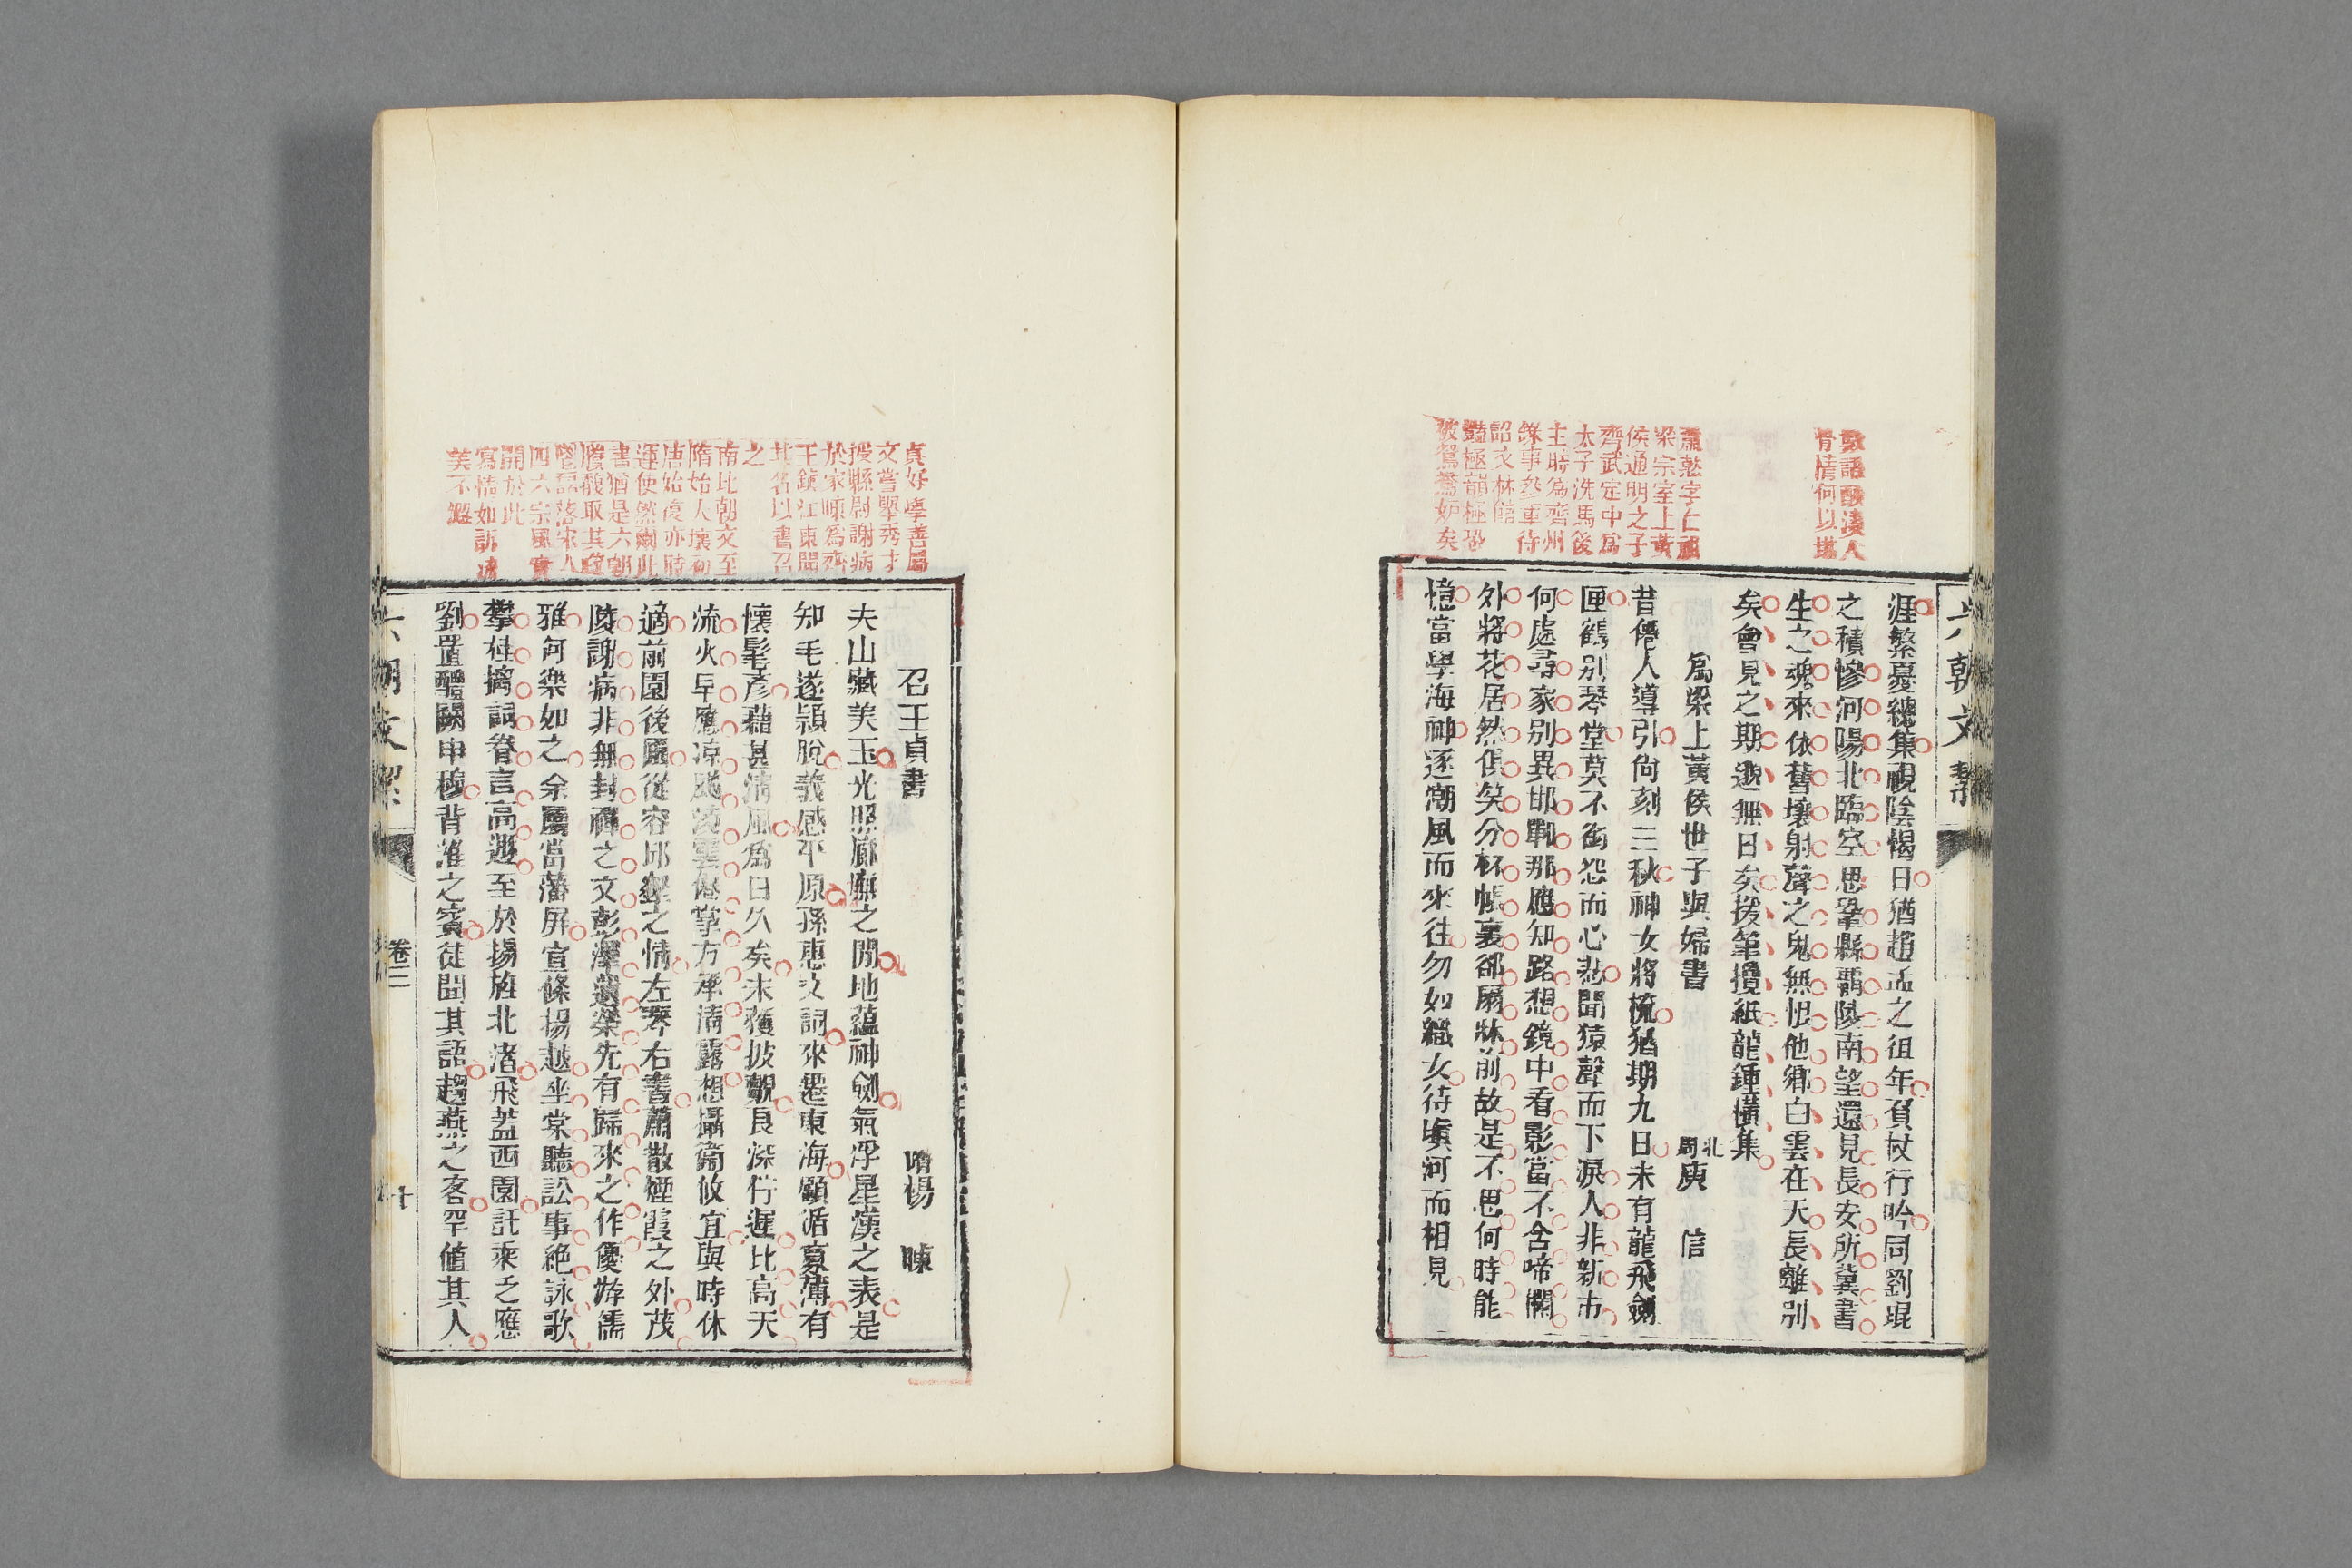 數語酸淒人
骨情何以堪
蕭愨字仁祖
梁宗室上黃
侯通明之子
齊武定中為
太子洗馬後
主時為齊州
錄事參軍待
詔文林館
豔極韻極恐
被鴛鴦妒矣
六朝文絜
涯繁憂總集視陰愒日猶趙孟之徂年負杖行吟同劉琨
之積慘河陽北臨空思鞏縣霸陵南望還見長安所冀書
生之魂來依舊壤射聲之鬼無恨他鄉白雲在天長離別
矣會見之期邈無日矣援筆攬紙龍鍾橫集
為梁上黃侯世子與婦書
北周庾信
昔僊人導引尙刻三秋神女將梳猶期九日未有龍飛劒
匣鶴別琴堂莫不銜怨而心悲聞猿聲而下淚人非新市
何處尋家別異邯鄲那應知路想鏡中看影當不含啼欄
外將花居然俱笑分杯帳裏卻扇牀前故是不思何時能
憶當學海神逐潮風而來往勿如織女待塡河而相見
貞好學善屬
文嘗舉秀才
授縣尉謝病
於家暕為齊
王鎮江東聞
其名以書召
之
南北朝文至
隋始大壞初
唐始復亦時
運使然爾此
書猶是六朝
四六宗風實
開於此
寫情如訴
美不
召王貞書
隋楊暕
夫山藏美玉光照廊廡之閒地蘊神劒氣浮星漢之表是
知毛遂穎脫義感平原孫惠文詞來遷東海顧循寡薄有
懷髦彥藉甚淸風為日久矣未獲披覿良深佇遲比高天
流火早應涼飈淩雲僊掌方承淸露想攝衞攸宜與時休
適前園後圃從容邱壑之情左琴右書蕭散煙霞之外茂
陵謝病非無封禪之文彭澤遺榮先有歸來之作優游儒
雅何樂如之余屬當藩屏宣條揚越坐棠聽訟事絕詠歌
攀桂摛詞眷言高遯至於揚旌北渚飛蓋西園託乘乏應
劉置醴闕申穆背淮之賓徒聞其語趨燕之客罕値其人
六朝文絜
卷三
十